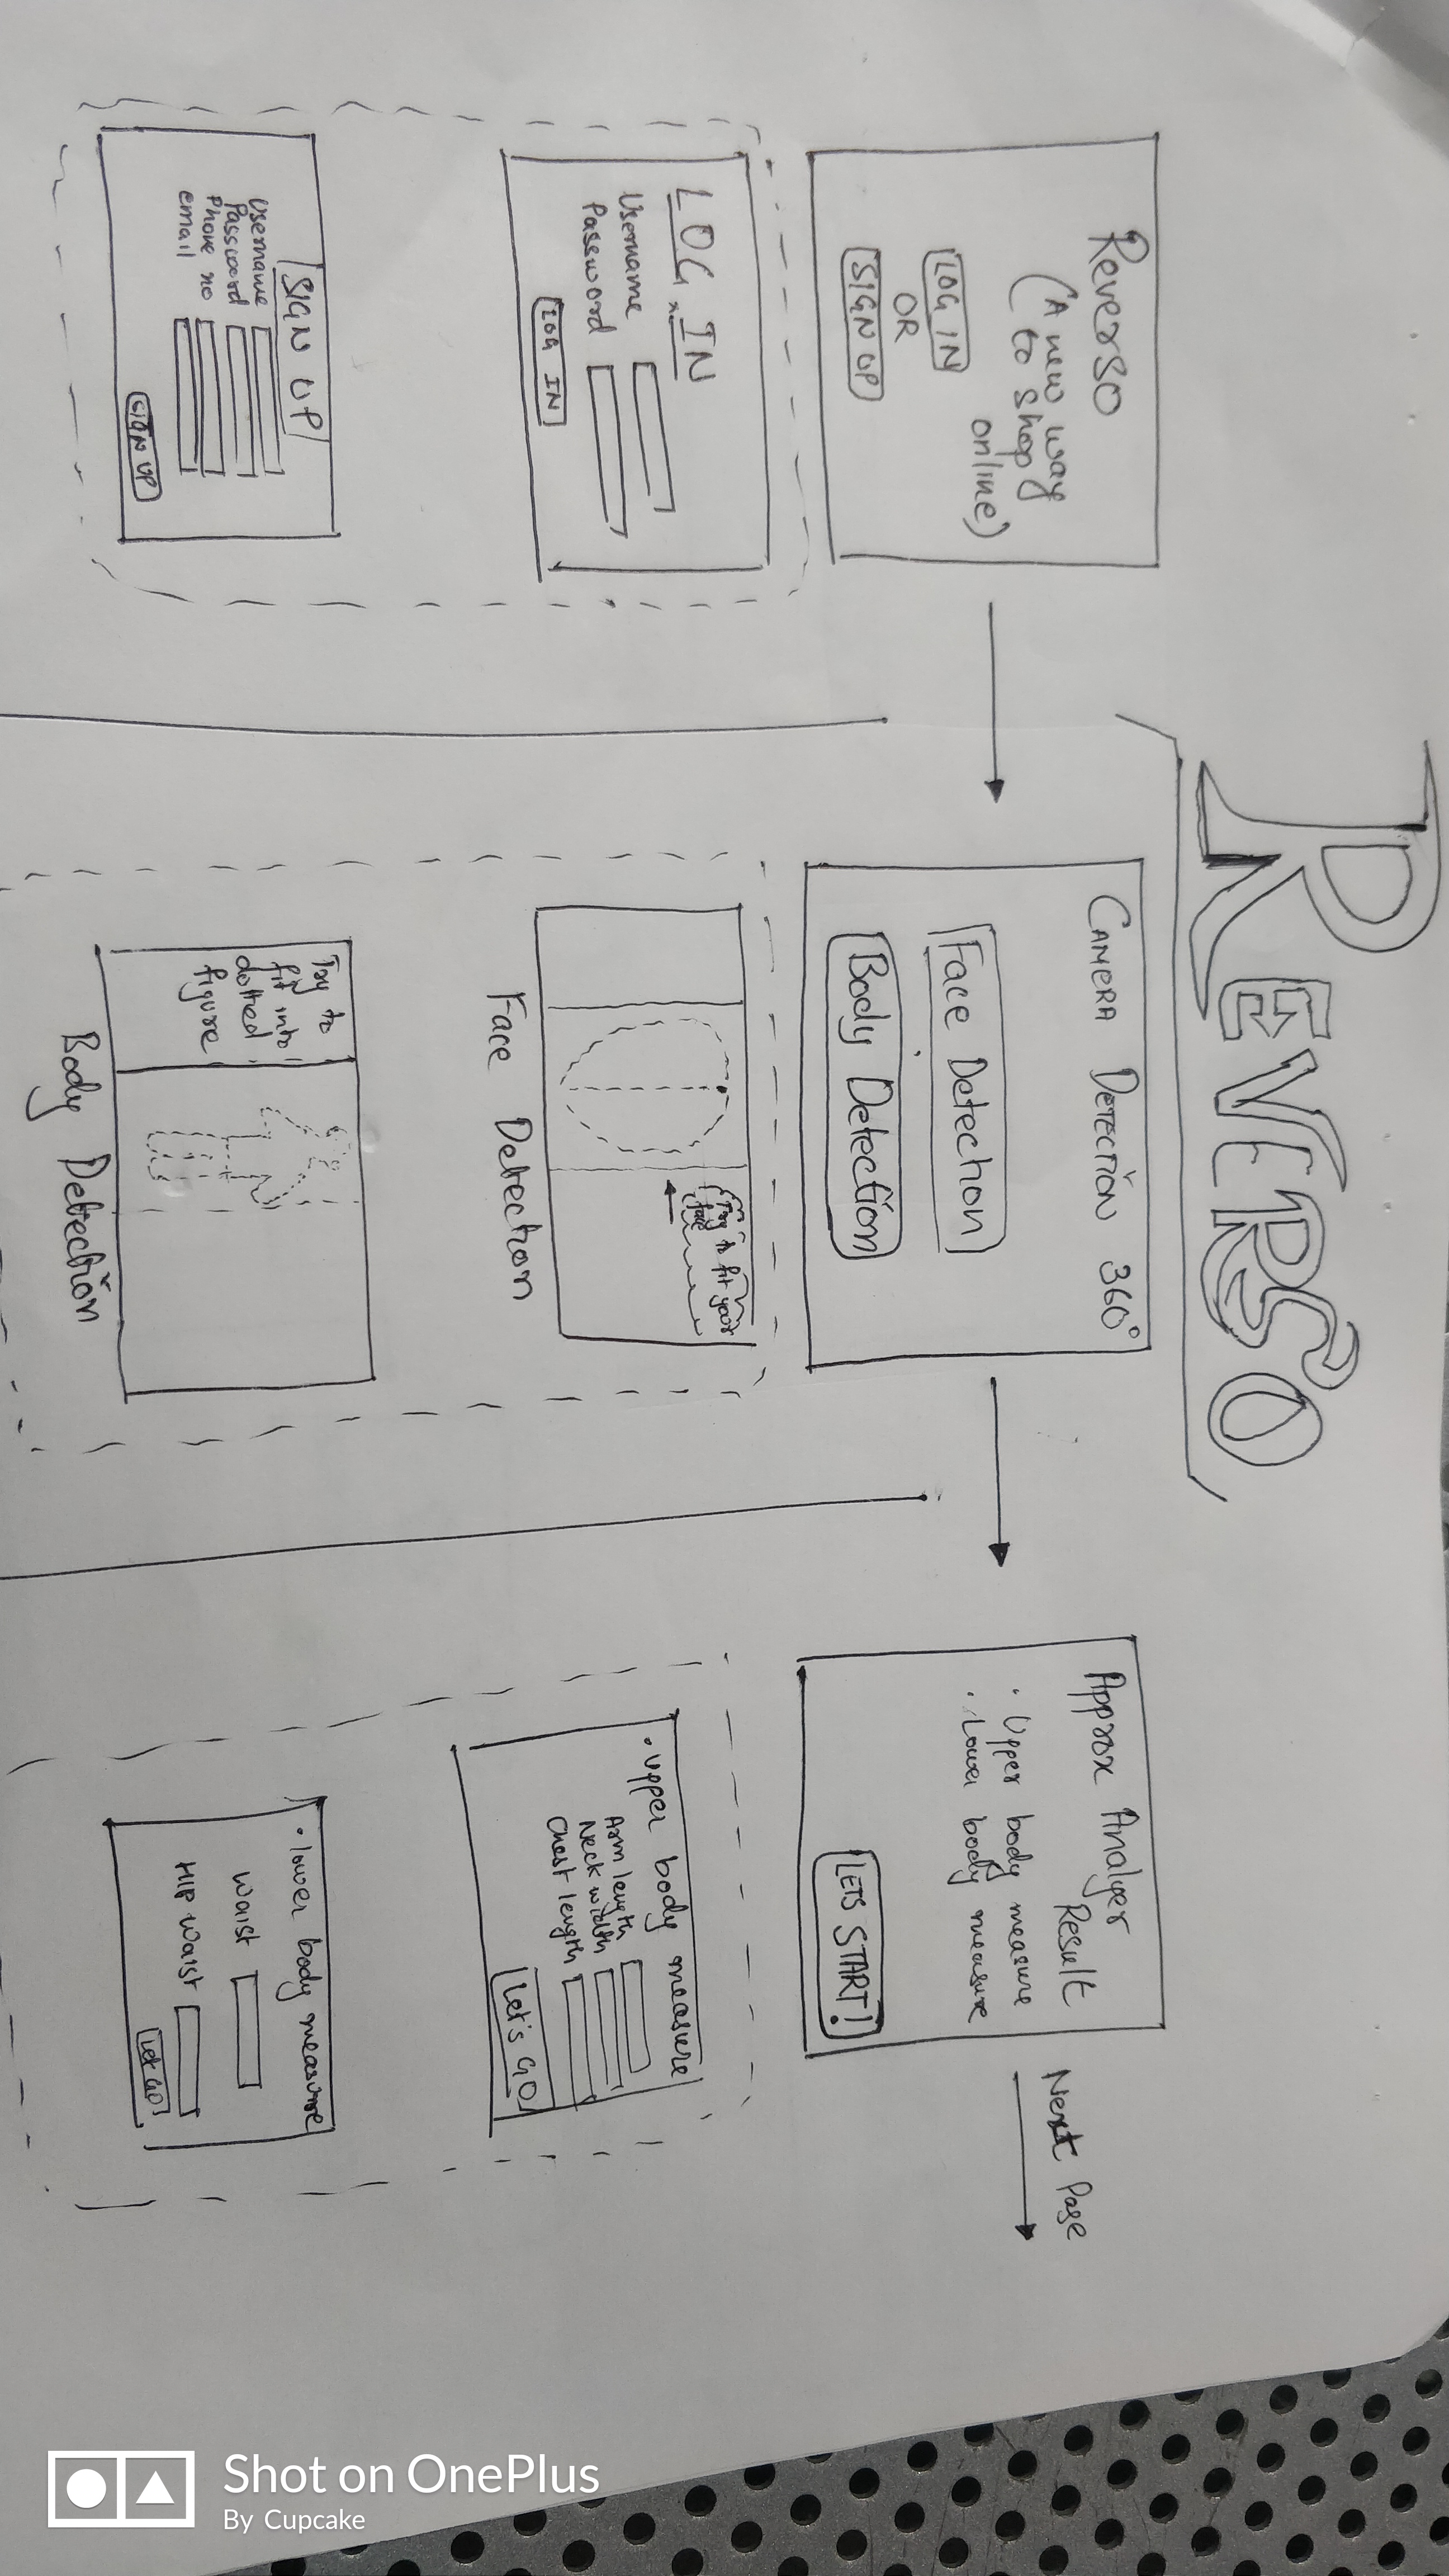 REVERSO
Reverso
(A new way
to shop
online)
LOG IN
OR
SIGN UP
LOG IN
Username
Password
LOG IN
SIGN UP
Username
Password
Phone no
email
SIGN UP
CAMERA DETECTION 360°
Face Detection
Body Detection
Try to fit your
face
Face Detection
Try to
fit into
dotted
figure
Body Detection
Approx Analyer
Result
· Upper body measure
· Lower body measure
LETS START!
Next Page
· Upper body measure
Arm length
Neck width
Chest length
Let's GO
· lower body measure
Waist
HIP waist
Let GO
Shot on OnePlus
By Cupcake